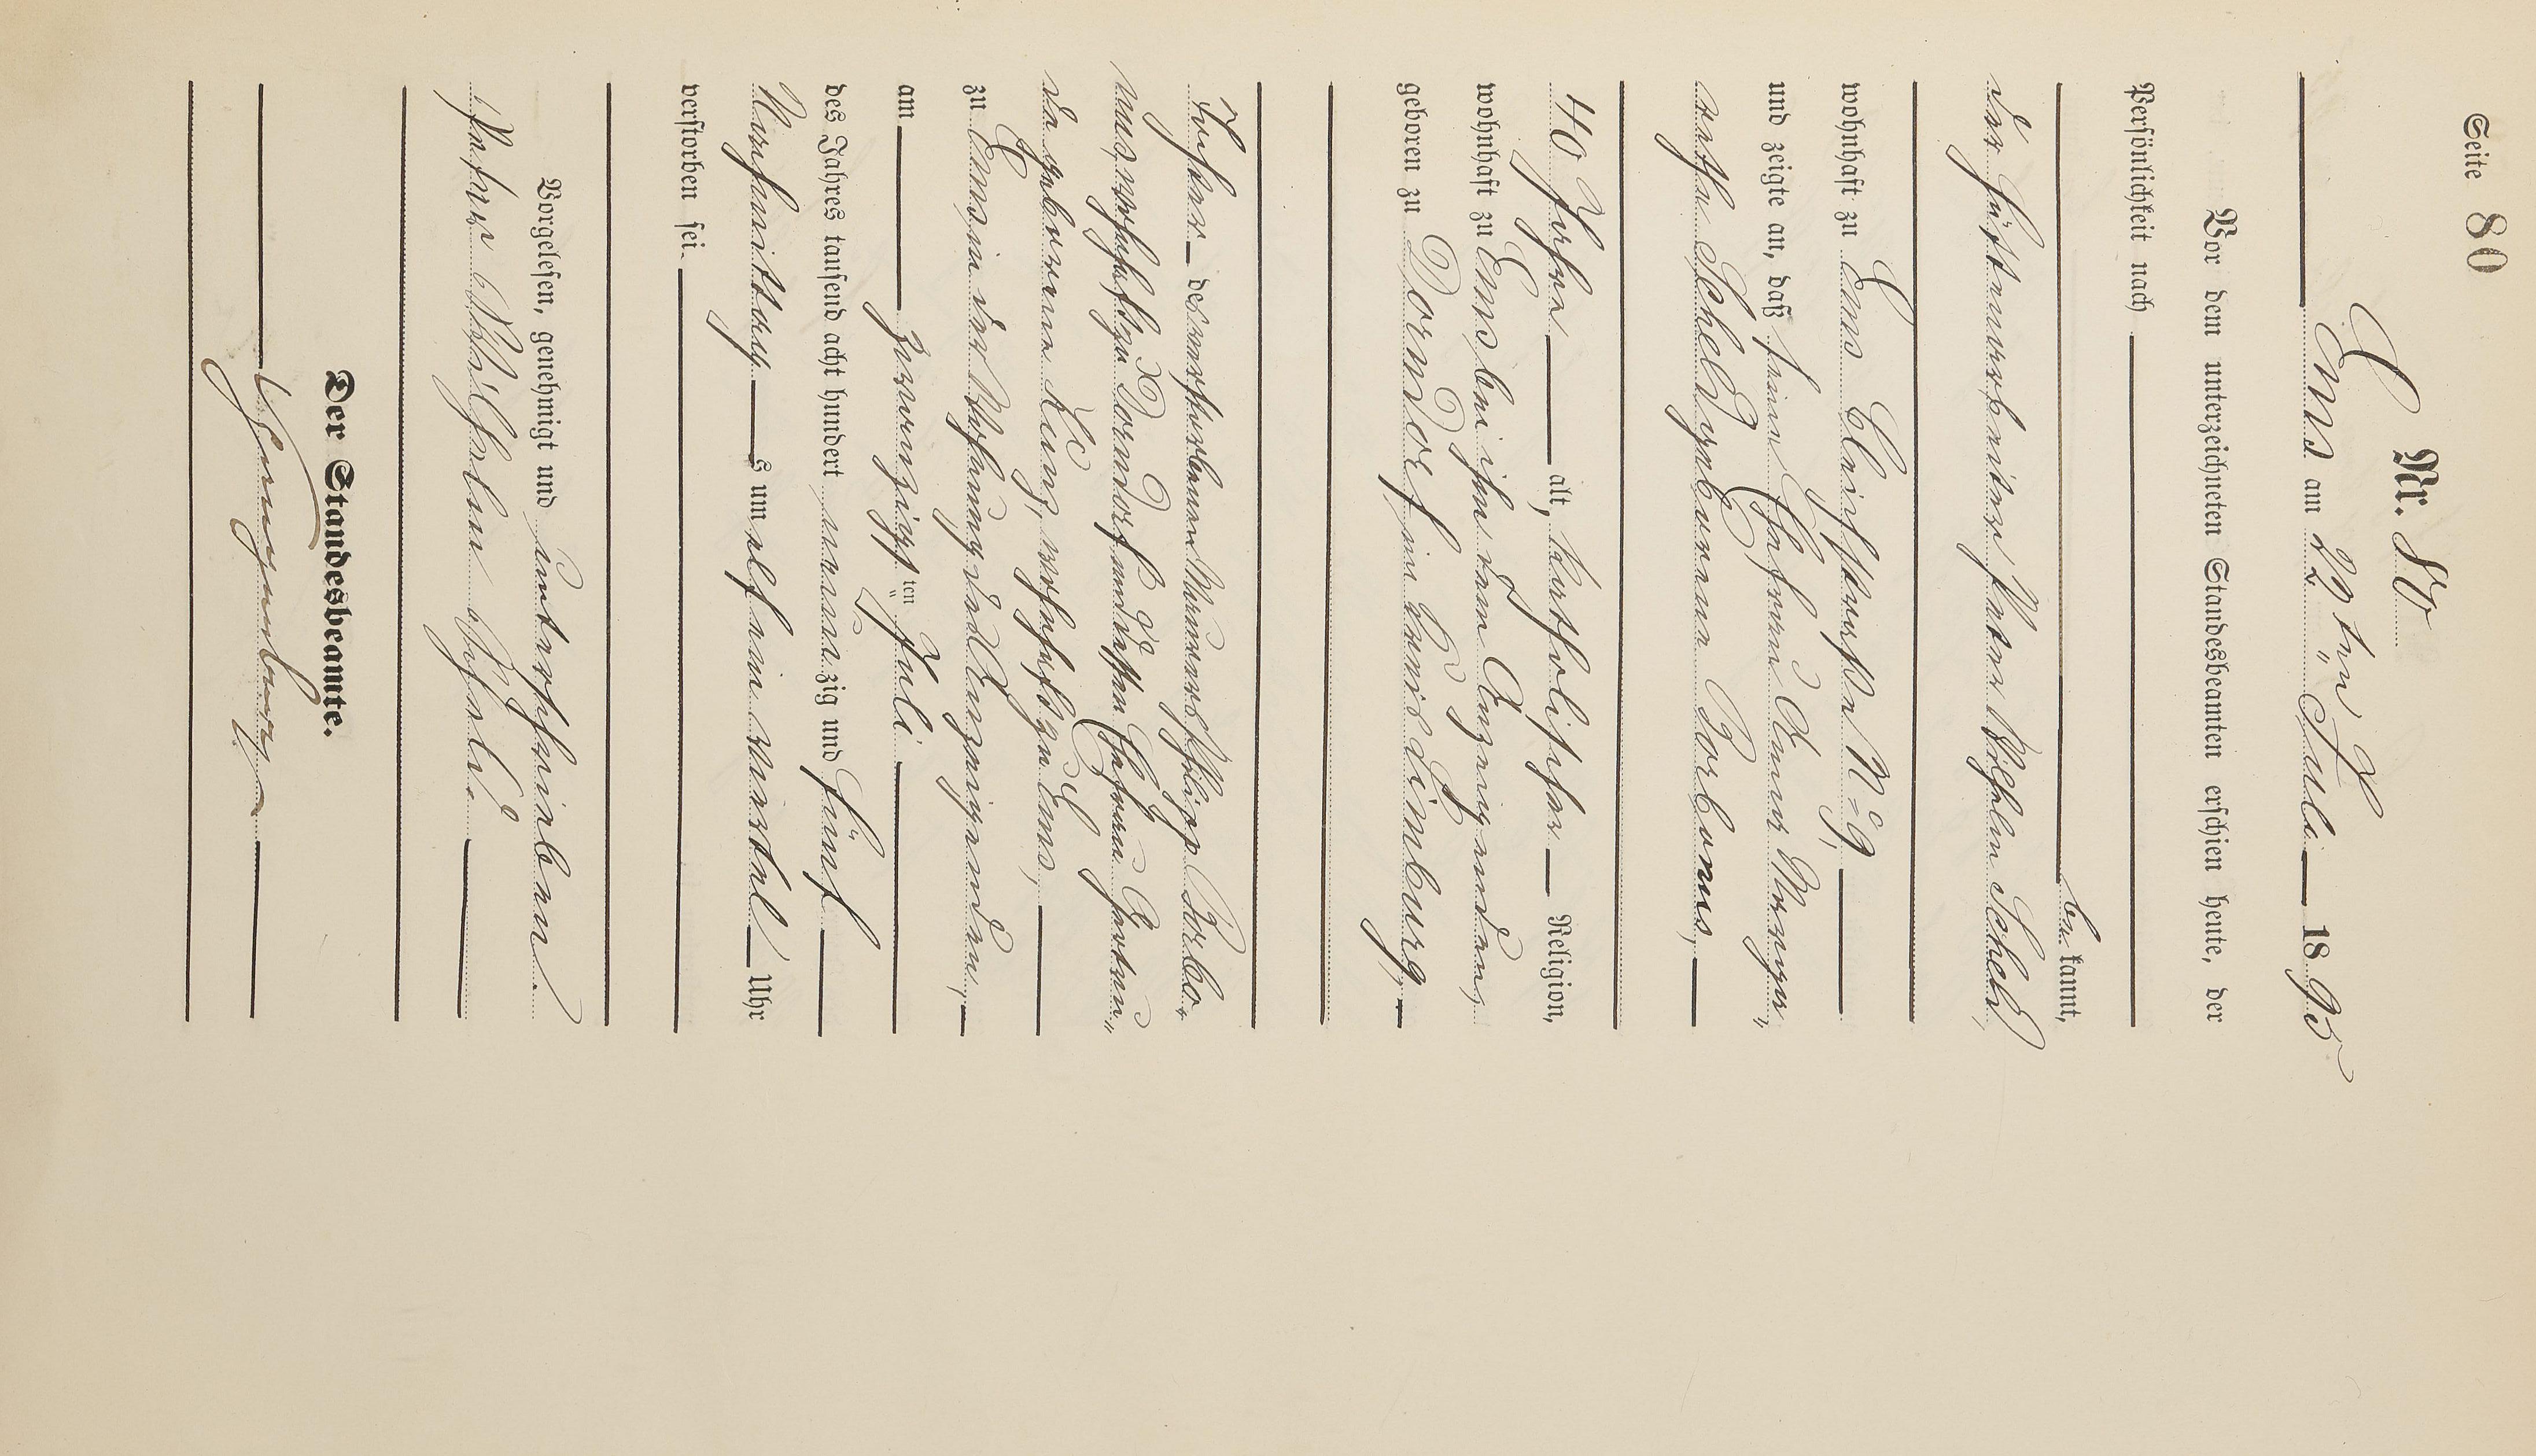 Seite 80
Nr. 80
Ems am 22ten Juli 1895
Vor dem unterzeichneten Standesbeamten erschien heute, der
Persönlichkeit nach
be kannt,
der Hüttenarbeiter Peter Wilhelm Scheld
wohnhaft zu Ems Bleichstraße No 9,
und zeigte an, daß seine Ehefrau Anna Marga,,
retha Scheld geborene Borbonus,
40 Jahre alt, katholischer Religion,
wohnhaft zu Ems bei ihm dem Anzeigenden,
geboren zu Dorndorf im Kreis Limburg,
Tochter des verstorbenen Maurers Philipp Borbo,,
nus wohnhaft zu Dorndorf und dessen Ehefrau
da geborene wohnhaft zu Ems,
zu Ems in der Wohnung des Anzeigenden,
am zwanzigsten Juli
des Jahres tausend acht hundert neunzig und fünf
Nachmittags um elf ein viertel Uhr
verstorben sei.
Vorgelesen, genehmigt und unterschrieben.
Peter Wilhelm Scheld.
Der Standesbeamte.